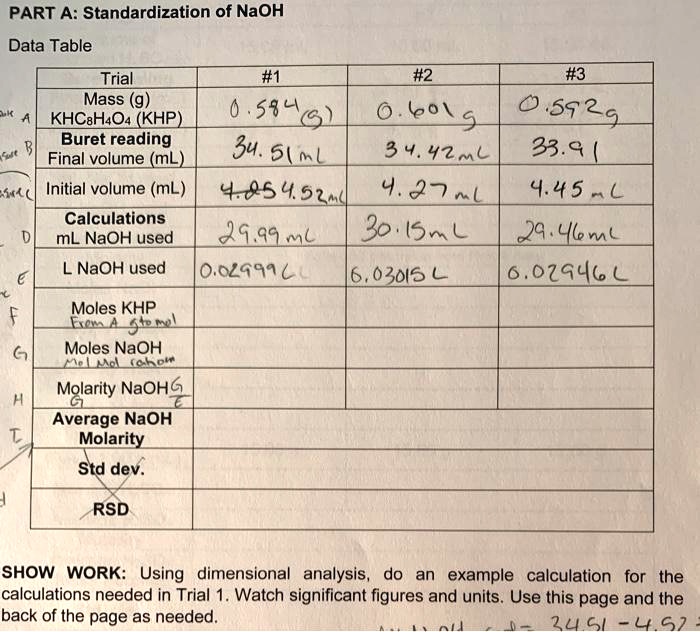 PART A: Standardization of NaOH
Data Table
Trial #1 #2 #3
A Mass (g) KHC8H4O4 (KHP) 0.584 (g) 0.601 g 0.592 g
B Buret reading Final volume (mL) 34.51 mL 34.42 mL 33.91
Initial volume (mL) 4.52 mL 4.27 mL 4.45 mL
D Calculations mL NaOH used 29.99 mL 30.15 mL 29.46 mL
E L NaOH used 0.02999 L 0.03015 L 0.02946 L
F Moles KHP From A g to mol
G Moles NaOH Mol Mol
H Molarity NaOH G G E
I Average NaOH Molarity
Std dev.
RSD
SHOW WORK: Using dimensional analysis, do an example calculation for the
calculations needed in Trial 1. Watch significant figures and units. Use this page and the
back of the page as needed.
34.51 - 4.52